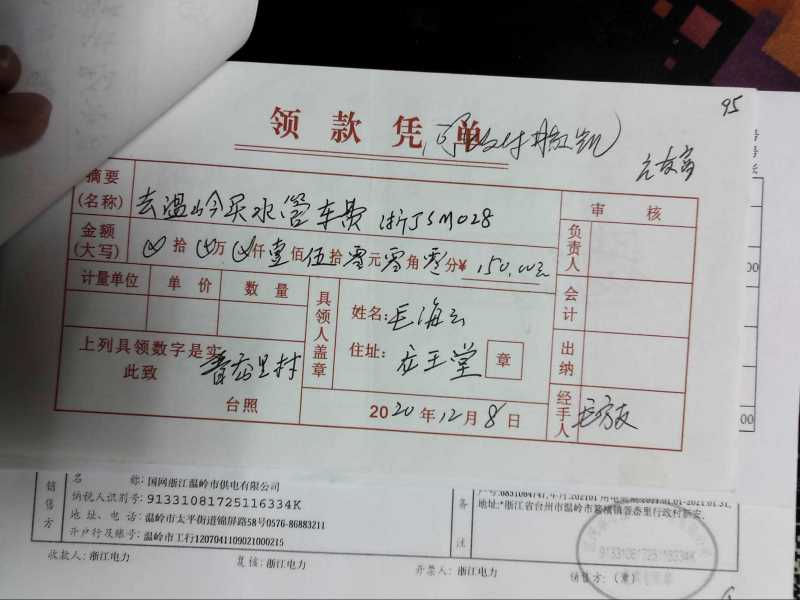 95
领款凭单
摘要
(名称)
去温岭买水管车费 浙JSM028
审核
金额
(大写)
拾 万 仟壹佰伍拾零元零角零分¥ 150.00元
负责人
计量单位 单价 数量
具领人盖章
姓名:毛海云
会计
上列具领数字是实
住址:应王堂
章
出纳
此致
里村
台照
2020年12月8日
经手人
销售方
名 称:国网浙江温岭市供电有限公司
纳税人识别号:91331081725116334K
地 址、电 话:温岭市太平街道锦屏路58号0576-86883211
开户行及账号:温岭市工行1207041109021000215
备注
收款人:浙江电力
复核:浙江电力
开票人:浙江电力
销售方:(章)
91331081725116334K